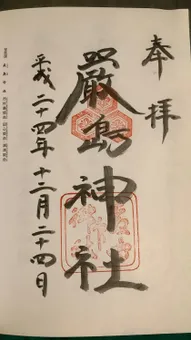 奉拝
厳島神社
平成二十四年十二月二十四日